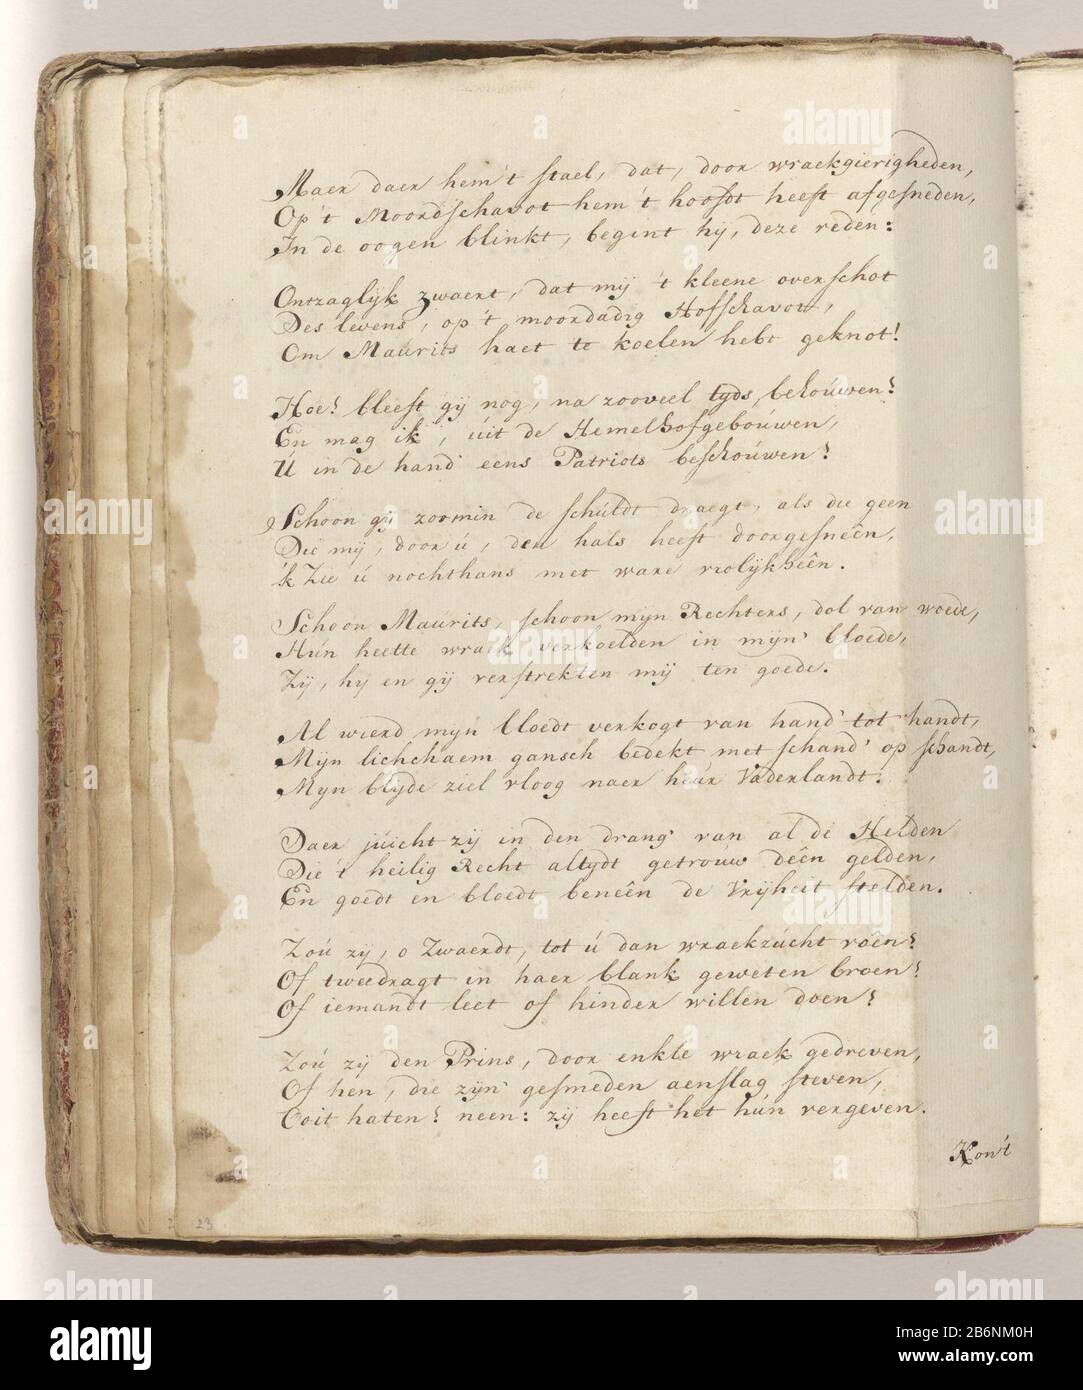 Maer daer hem 't stael, dat, door wraekgierigheden,
Op 't Moordschavot hem 't hoofdt heeft afgesneden,
In de oogen blinkt, begint hy, deze reden:
Ontzaglijk zwaert, dat mij 't kleene overschot
Des levens, op 't moordadig Hofschavot,
Om Maurits haet te koelen hebt geknot!
Hoe! bleeft gij nog, na zooveel tyds, behoúwen?
En mag ik, úit de Hemelhofgeboúwen,
U in de hand eens Patriots beschoúwen?
Schoon gij zoomin de schúldt draegt, als die geen
Die mij, door ú, den hals heeft doorgesneên,
'k Zie ú nochthans met ware vrolijkheên.
Schoon Maurits, schoon mijn Rechters, dol van woede,
Hún heette wraek verkoelden in mijn' bloede,
Zij, hy en gij verstrekten mij ten goede.
Al wierd mijn bloedt verkogt van hand' tot handt,
Mijn lichchaem gansch bedekt met schand' op schandt,
Myn blijde ziel vloog naer heúr Vaderlandt.
Daer júicht zij in den drang' van al de Helden
Die 't heilig Recht altydt getrouw dêen gelden,
En goedt en bloedt beneên de Vrijheit stelden.
Zoú zij, o Zwaerdt, tot ú dan wraekzúcht voên?
Of tweedragt in haer blank geweten broen?
Of iemandt leet of hinder willen doen?
Zoú zij den Prins, door enkle wraek gedreven,
Of hen, die zijn' gesmeden aenslag steven,
Ooit haten? neen: zij heeft het hún vergeven.
Kon't
23
alamy
Image ID: 2B6NM0H
www.alamy.com